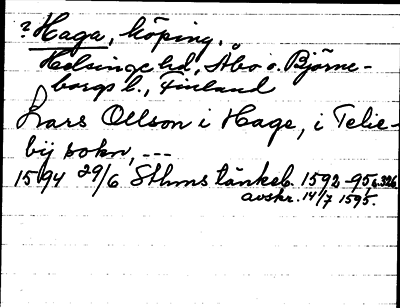 ? Haga, köping,
Halsinge hd, Åbo o. Björne-
borgs l., Finland
Lars Ollson i Hage, i Telie-
bij sokn, ---
1594 29/6 Sthms tänkeb. 1592-95, s. 326
avskr. 14/7 1595.